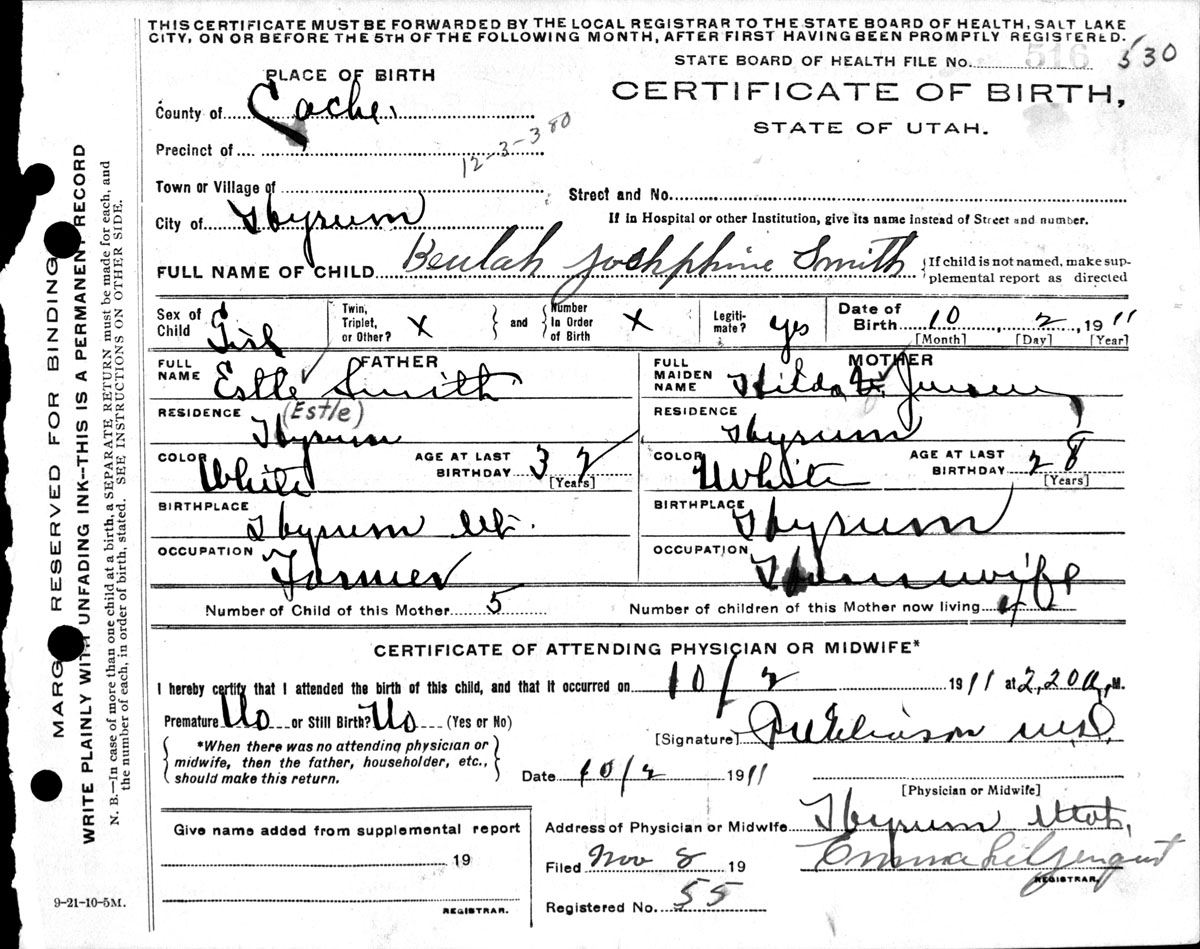 THIS CERTIFICATE MUST BE FORWARDED BY THE LOCAL REGISTRAR TO THE STATE BOARD OF HEALTH, SALT LAKE
CITY, ON OR BEFORE THE 5TH OF THE FOLLOWING MONTH, AFTER FIRST HAVING BEEN PROMPTLY REGISTERED.
STATE BOARD OF HEALTH FILE No. 516 530
PLACE OF BIRTH
CERTIFICATE OF BIRTH,
STATE OF UTAH.
County of Cache
Precinct of
12-3-380
Town or Village of
Street and No.
City of Hyrum
If in Hospital or other Institution, give its name instead of Street and number.
FULL NAME OF CHILD Beulah Josephine Smith
{If child is not named, make sup-
plemental report as directed
Sex of Child Girl
Twin, Triplet, or Other? X
and
Number In Order of Birth X
Legiti-mate? yes
Date of Birth 10 2, 1911
[Month] [Day] [Year]
FATHER
FULL NAME Estle Smith
(Estle)
RESIDENCE Hyrum
COLOR White
AGE AT LAST BIRTHDAY 32
[Years]
BIRTHPLACE Hyrum Ut.
OCCUPATION Farmer
MOTHER
FULL MAIDEN NAME Hilda Jensen
RESIDENCE Hyrum
COLOR White
AGE AT LAST BIRTHDAY 28
[Years]
BIRTHPLACE Hyrum
OCCUPATION Housewife
Number of Child of this Mother 5
Number of children of this Mother now living 4
CERTIFICATE OF ATTENDING PHYSICIAN OR MIDWIFE*
I hereby certify that I attended the birth of this child, and that it occurred on 10/2 1911 at 2,20 a, M.
Premature No or Still Birth? No (Yes or No)
*When there was no attending physician or
midwife, then the father, householder, etc.,
should make this return.
[Signature] M.D.
Date 10/2 1911
[Physician or Midwife]
Give name added from supplemental report
19
REGISTRAR.
Address of Physician or Midwife Hyrum Utah,
Filed Nov 8 19
Emma Liljenquist
REGISTRAR.
Registered No. 55
9-21-10-5M.
MARGIN RESERVED FOR BINDING
WRITE PLAINLY WITH UNFADING INK—THIS IS A PERMANENT RECORD
N. B.—In case of more than one child at a birth, a SEPARATE RETURN must be made for each, and
the number of each, in order of birth, stated. SEE INSTRUCTIONS ON OTHER SIDE.